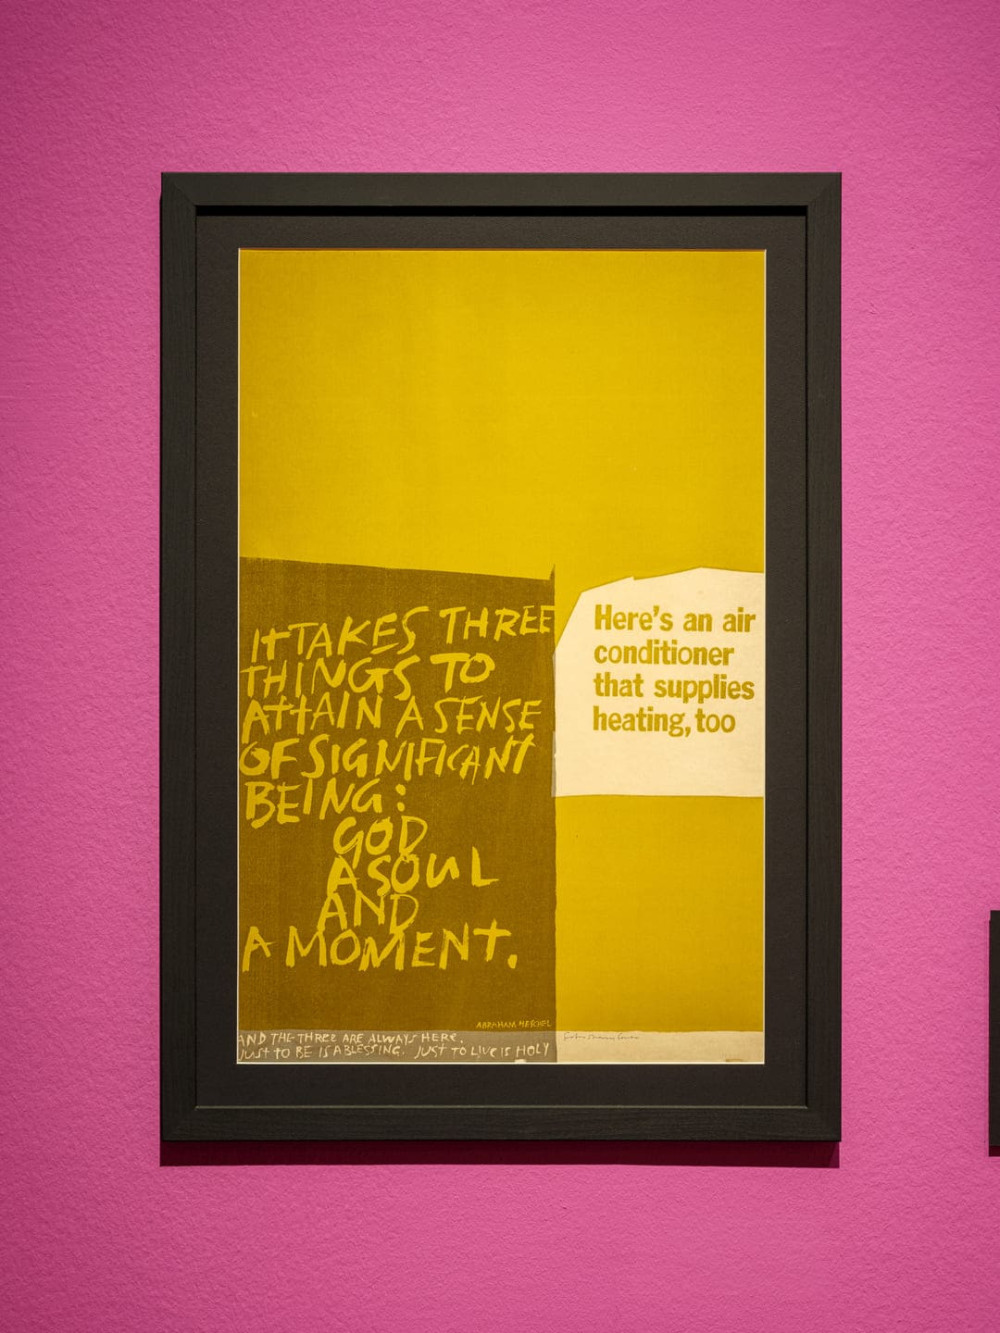 IT TAKES THREE
THINGS TO
ATTAIN A SENSE
OF SIGNIFICANT
BEING:
GOD
A SOUL
AND
A MOMENT.
ABRAHAM HESCHEL
AND THE THREE ARE ALWAYS HERE.
JUST TO BE IS A BLESSING. JUST TO LIVE IS HOLY
Here's an air
conditioner
that supplies
heating, too